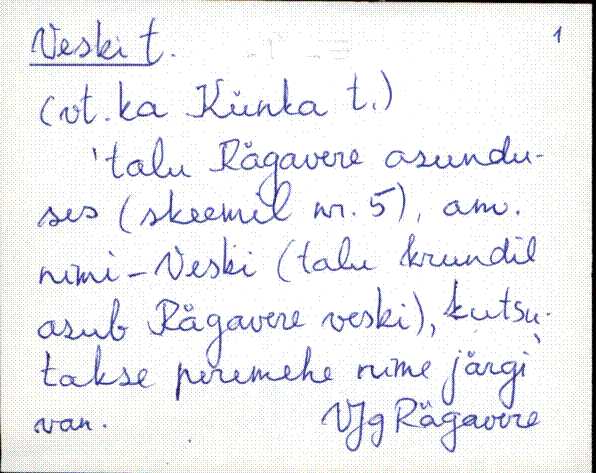 Veski t. 1
(vt. ka Künka t.)
'talu Rägavere asundu-
ses (skeemil nr. 5), am.
nimi - Veski (talu krundil
asub Rägavere veski), kutsu-
takse peremehe nime järgi'
van. VJg Rägavere